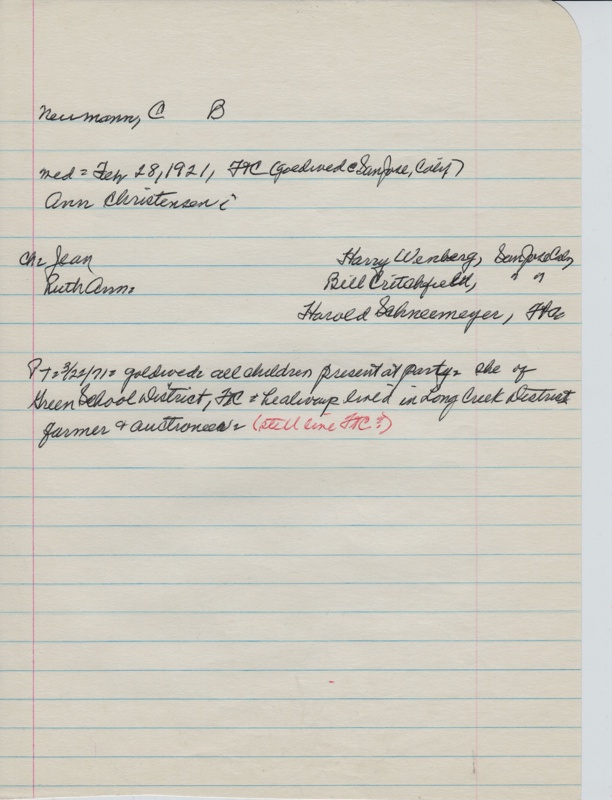 Neumann, C B
med = Feb 28, 1921, FtC (goldwed @ San Jose, Calif)
Ann Christensen
ch = Jean Harry Wenberg, San Jose Cal,
Ruth Ann = Bill Critchfield, " "
Harold Schneemeyer, Ft C
Pt = 3/22/71 = goldwed = all children present at party = she of
Green School District, FtC = he always lived in Long Creek District
farmer & auctioneer = (still live FtC?)